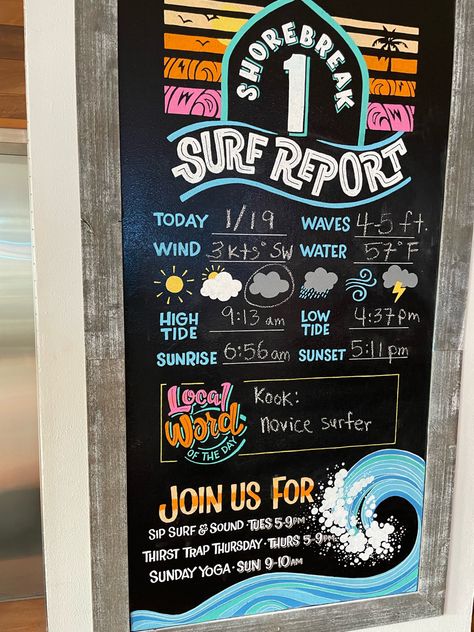 SHOREBREAK
1
SURF REPORT
TODAY 1/19 WAVES 4-5 ft.
WIND 3 kts° SW WATER 57°F
HIGH TIDE 9:13 am LOW TIDE 4:37pm
SUNRISE 6:56am SUNSET 5:11pm
Local Word OF THE DAY
Kook:
novice surfer
JOIN US FOR
SIP SURF & SOUND · TUES 5-9PM
THIRST TRAP THURSDAY · THURS 5-9PM
SUNDAY YOGA · SUN 9-10AM